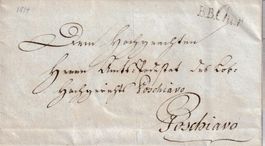 1814
BB.Chur
Dem Hochgeachten
Herrn Amts des Lobl.
Hochgerichts Poschiavo
Poschiavo